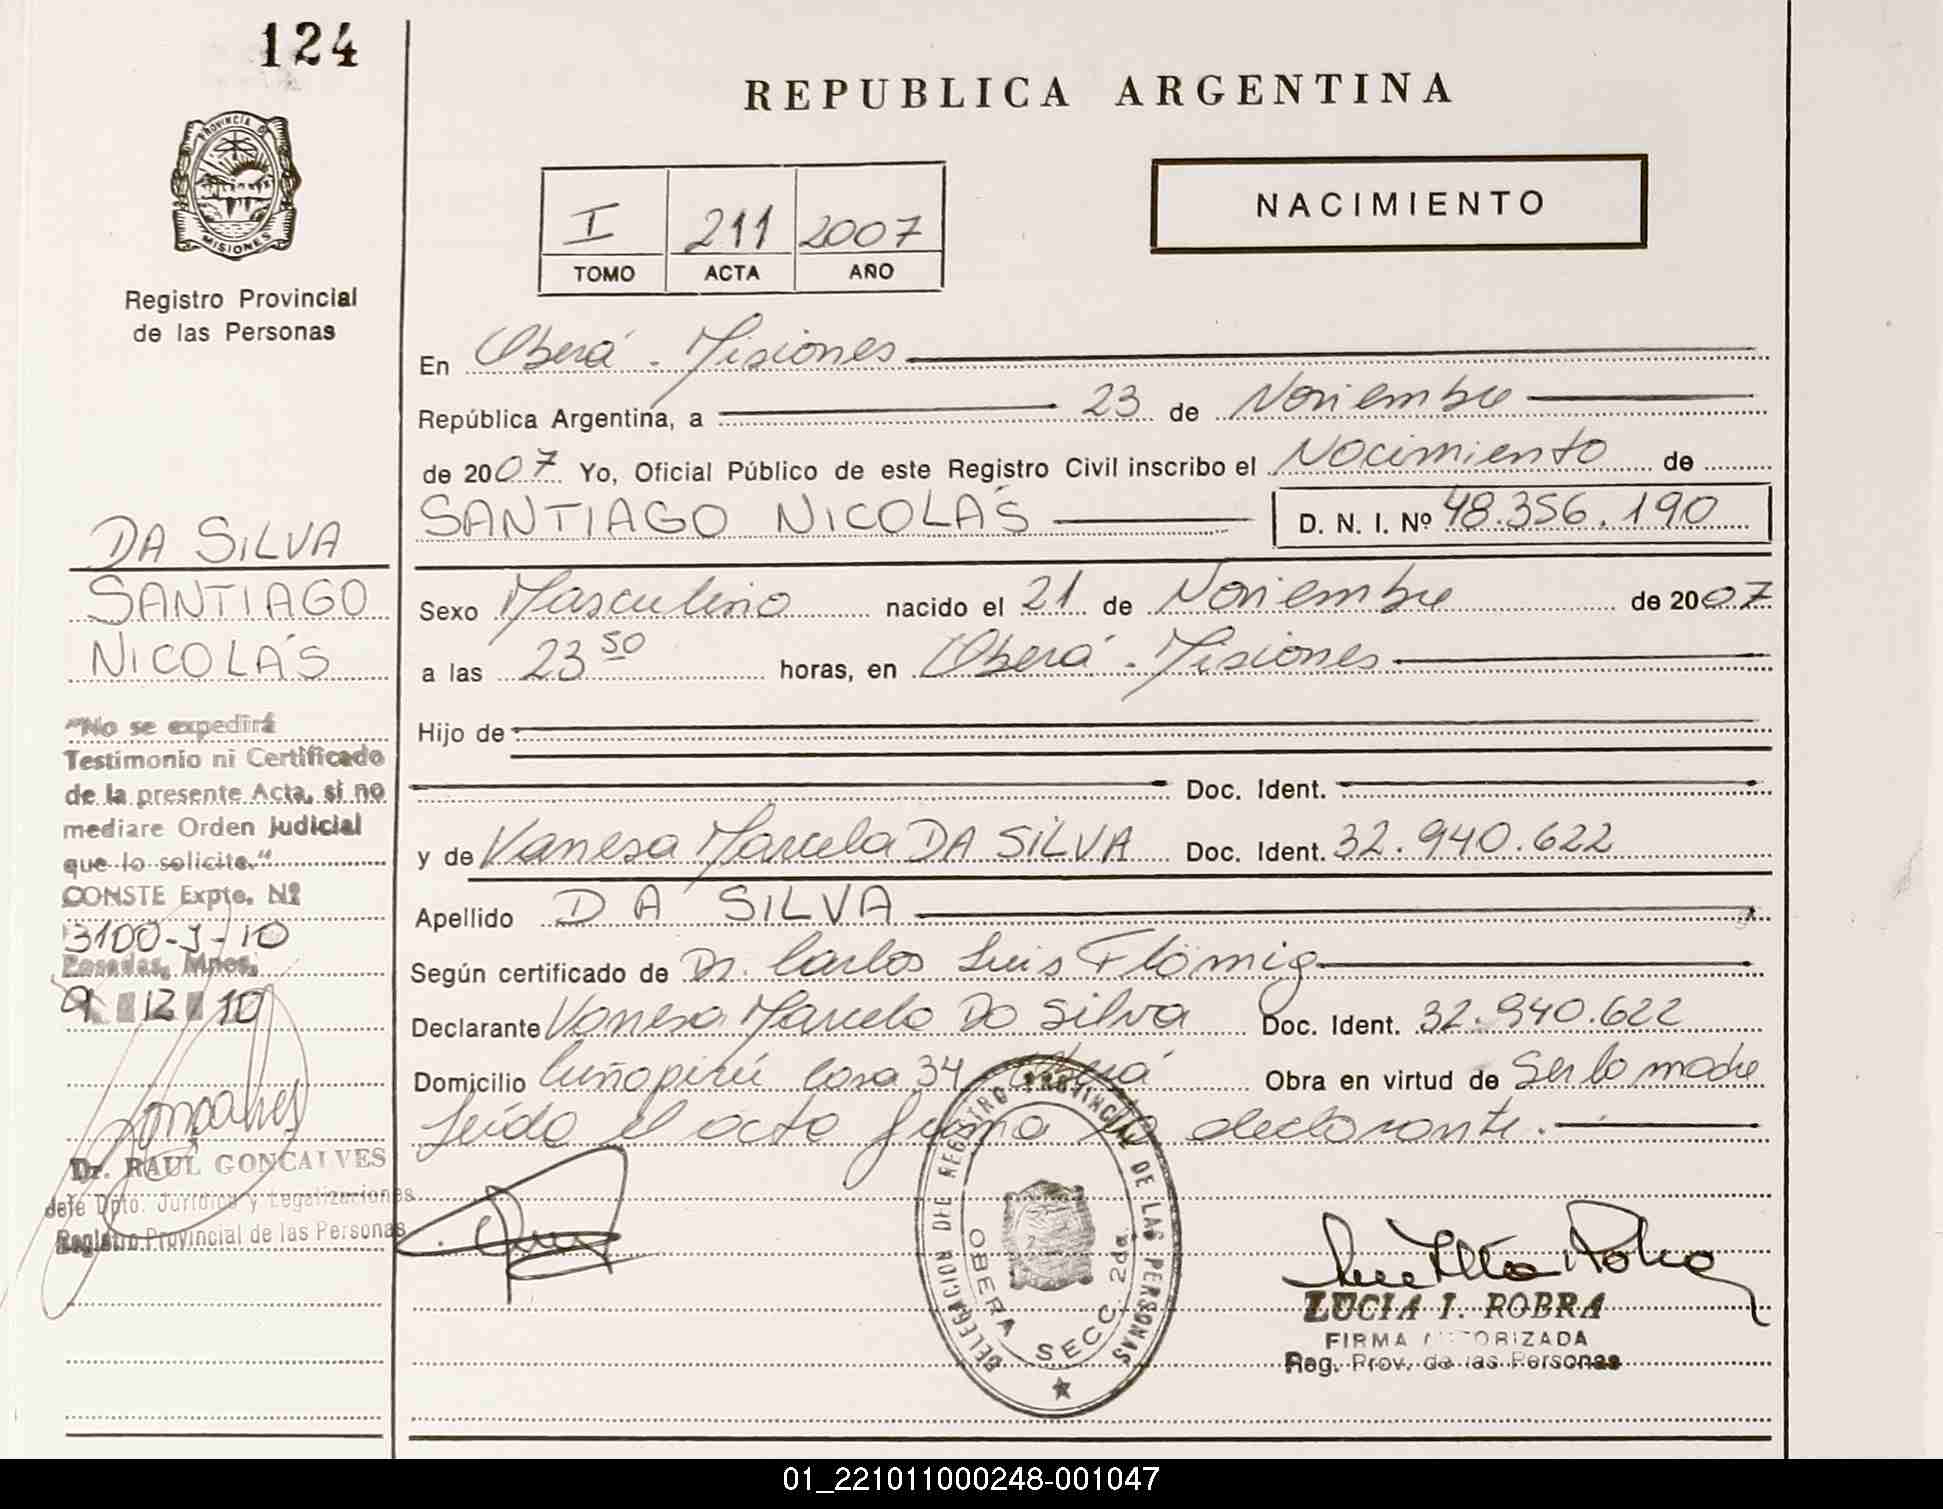 124
REPUBLICA ARGENTINA
PROVINCIA D
MISIONES
Registro Provincial
de las Personas
I 211 2007
TOMO ACTA AÑO
NACIMIENTO
En Oberá - Misiones
República Argentina, a 23 de Noviembre
de 2007 Yo, Oficial Público de este Registro Civil inscribo el Nacimiento de
SANTIAGO NICOLÁS D. N. I. Nº 48.356.190
Sexo Masculino nacido el 21 de Noviembre de 2007
a las 23 50 horas, en Oberá - Misiones
Hijo de
Doc. Ident.
y de Vanesa Marcela DA SILVA Doc. Ident. 32.940.622
Apellido DA SILVA
Según certificado de Dr. Carlos Luis Flömig
Declarante Vanesa Marcela Da Silva Doc. Ident. 32.940.622
Domicilio Cuñapirú casa 34 Oberá Obra en virtud de Ser la madre
leída el acta firma la declarante.
DA SILVA
SANTIAGO
NICOLÁS
"No se expedirá
Testimonio ni Certificado
de la presente Acta, si no
mediare Orden Judicial
que lo solicite."
CONSTE Expte. Nº
3100-J-10
Posadas, Mnes.
9 12 10
Dr. RAUL GONCALVES
Jefe Dpto. Jurídica y Legalizaciones
Registro Provincial de las Personas
DELEGACION DEL REGISTRO PROVINCIAL DE LAS PERSONAS
OBERA SECC. 2da.
LUCIA I. ROBRA
FIRMA AUTORIZADA
Reg. Prov. de las Personas
01_221011000248-001047